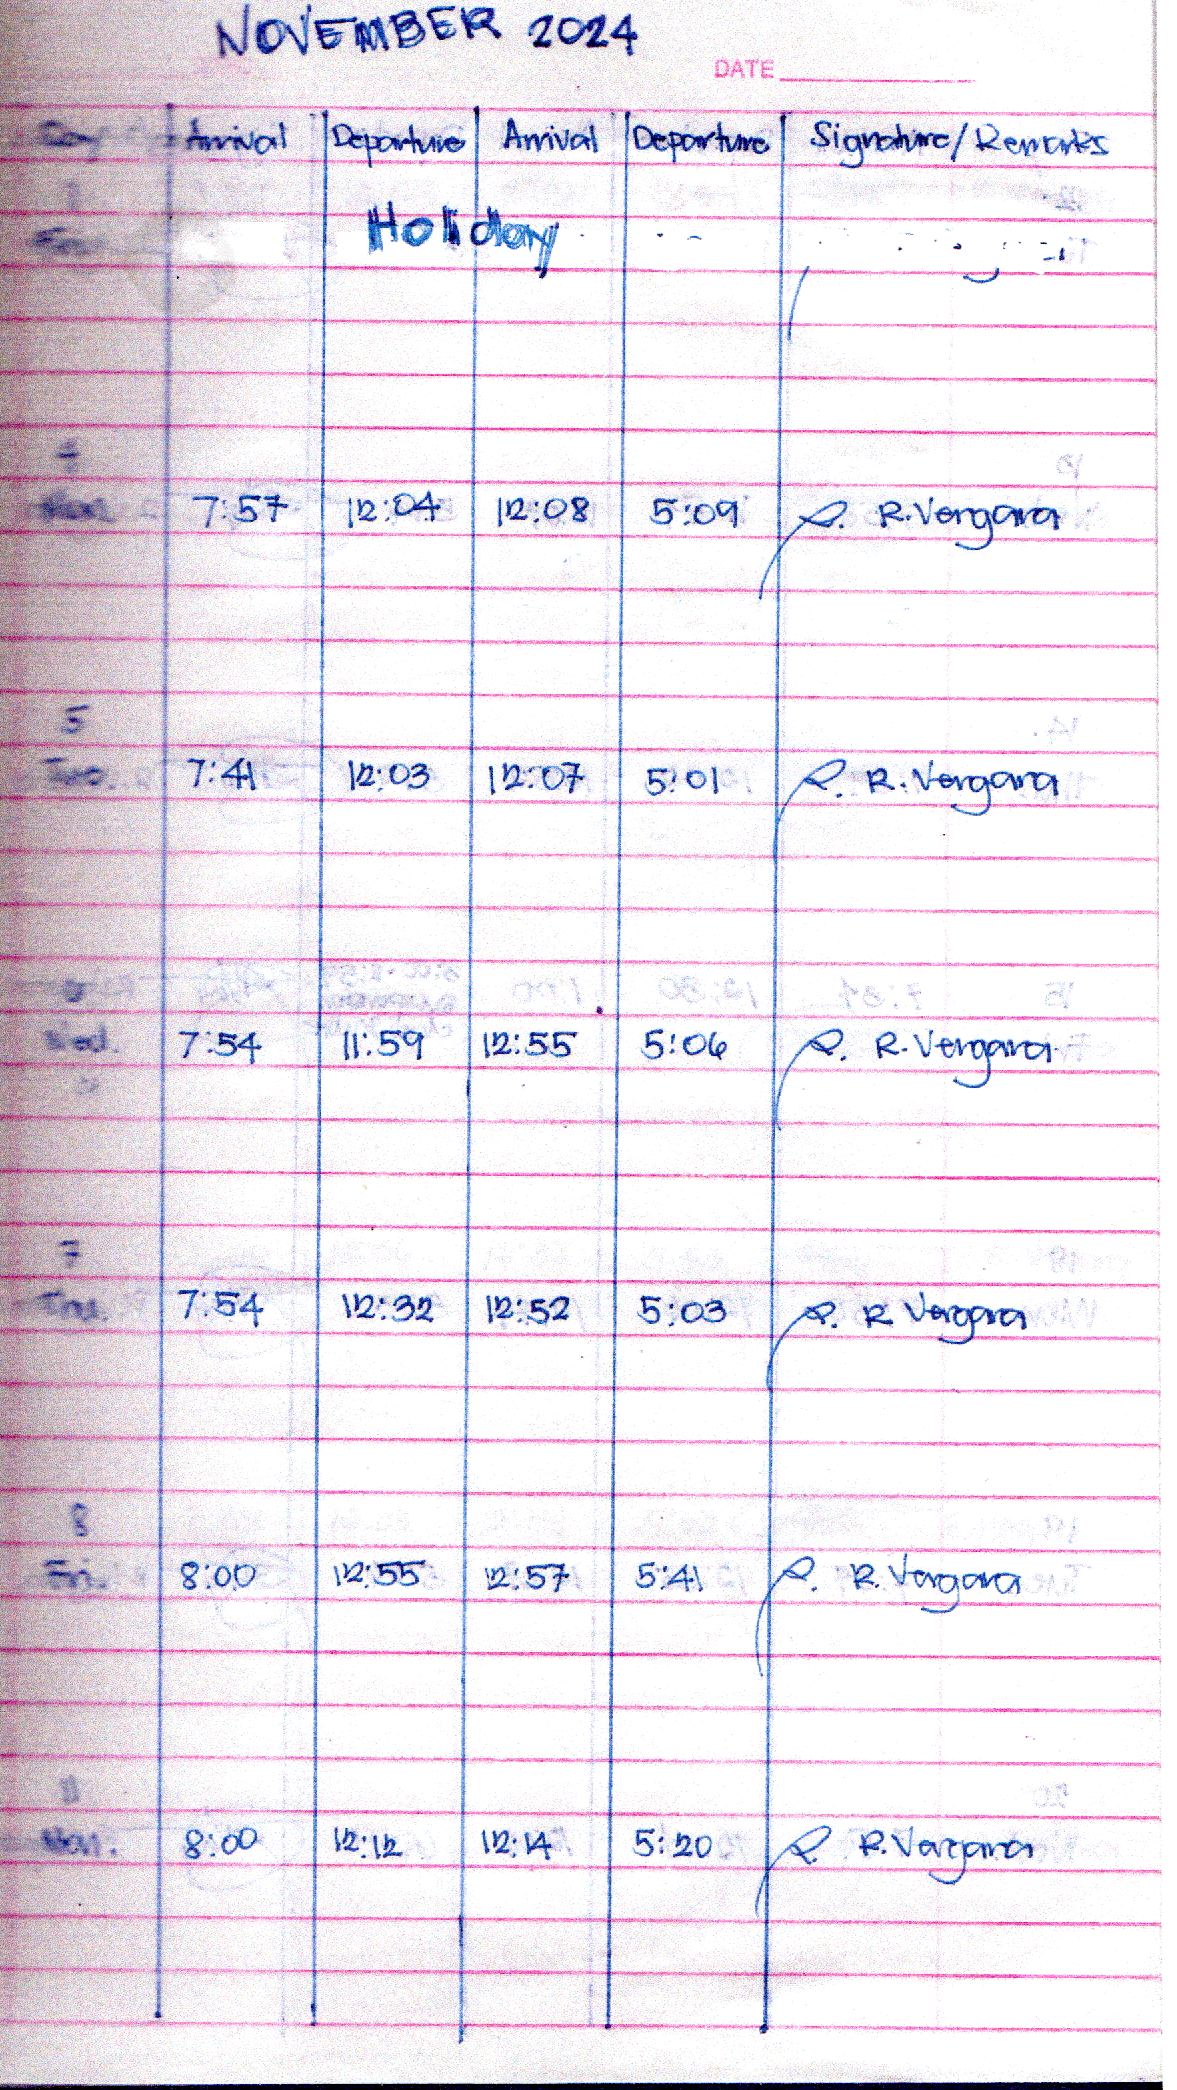 NOVEMBER 2024
DATE
Day Arrival Departure Arrival Departure Signature/Remarks
1
Holiday
4
Mon. 7:57 12:04 12:08 5:09 R. Vergara
5
Tue. 7:41 12:03 12:07 5:01 R. Vergara
6
Wed. 7:54 11:59 12:55 5:06 R. Vergara
7
7:54 12:32 12:52 5:03 R. Vergara
8
Fri. 8:00 12:55 12:57 5:41 R. Vergara
11
Mon. 8:00 12:12 12:14 5:20 R. Vergara